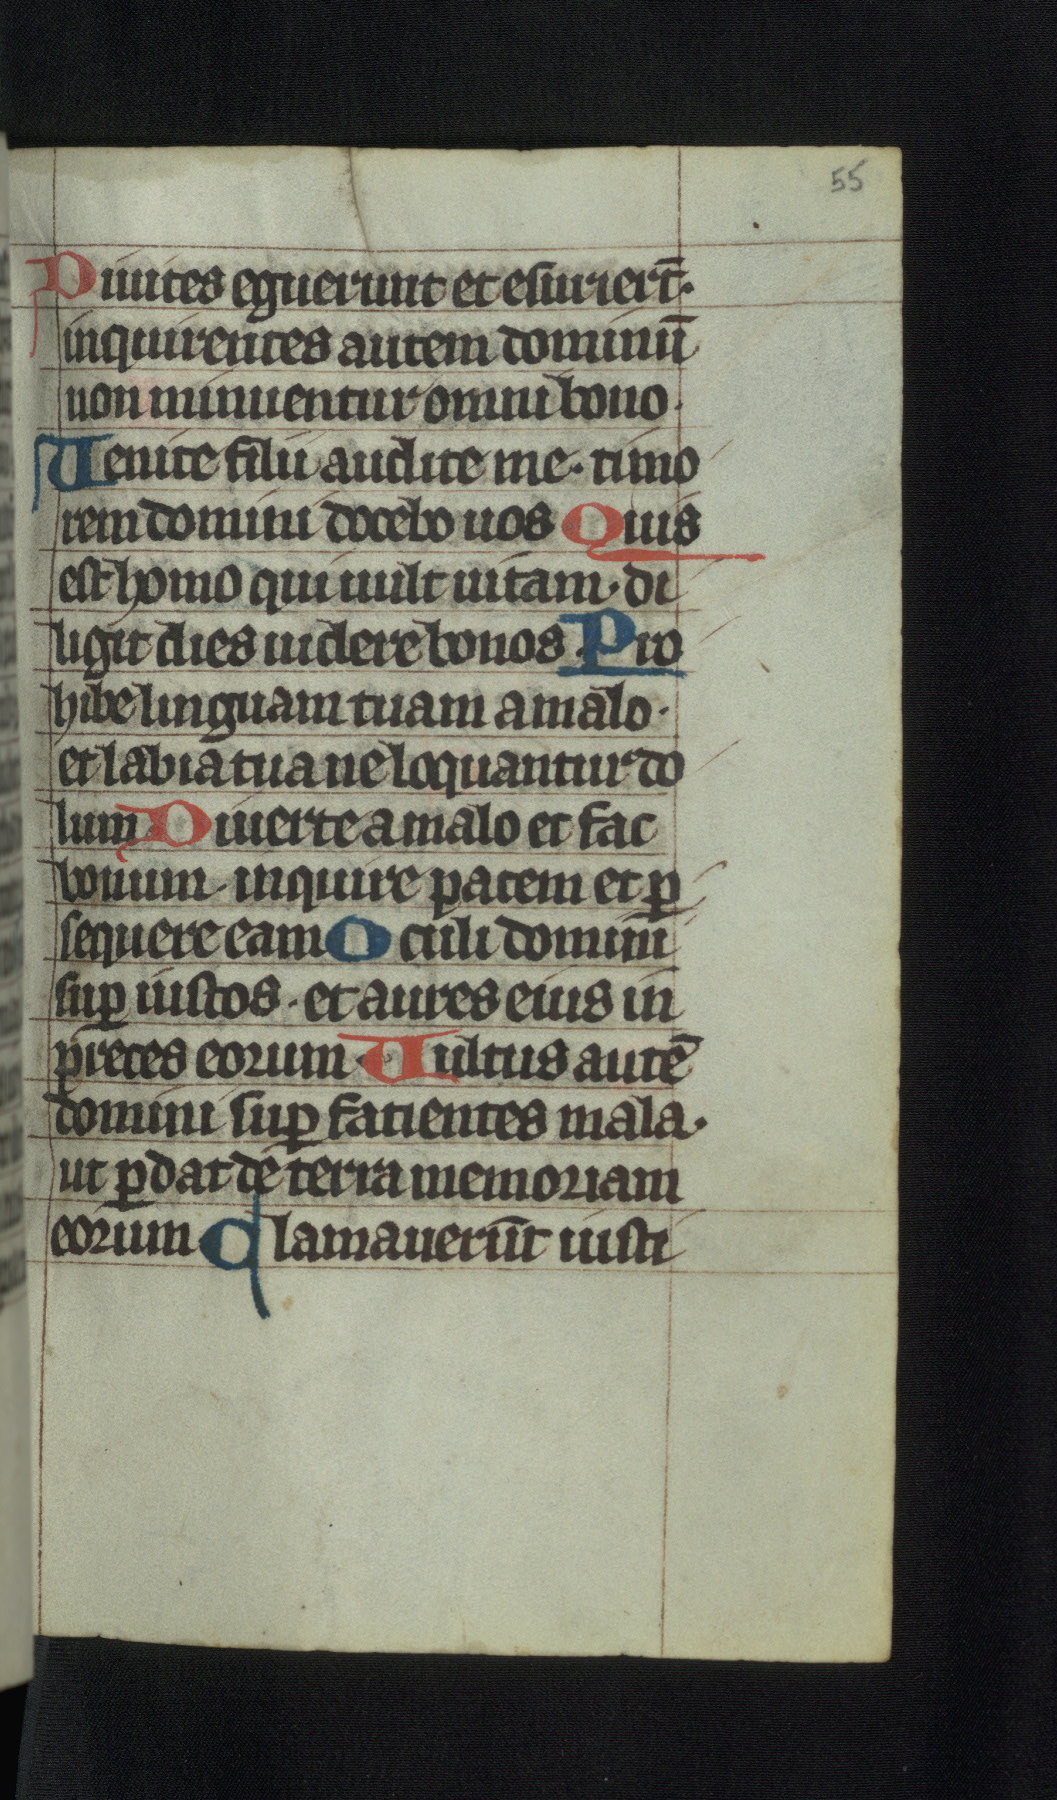 55
Diuites eguerunt et esurier̄t·
inquirentes autem dominū
non minuentur omni bono·
Uenite filii audite me· timo
rem domini docebo uos Quis
est homo qui uult uitam· di
ligit dies uidere bonos· Pro
hibe linguam tuam a malo·
et labia tua ne loquantur do
lum· Diuerte a malo et fac
bonum· inquire pacem et ꝑ
sequere eam Oculi domini
suꝑ iustos· et aures eius in
preces eorum Uultus autē
domini suꝑ facientes mala·
ut ꝑdat de terra memoriam
eorum Clamauerūt iusti